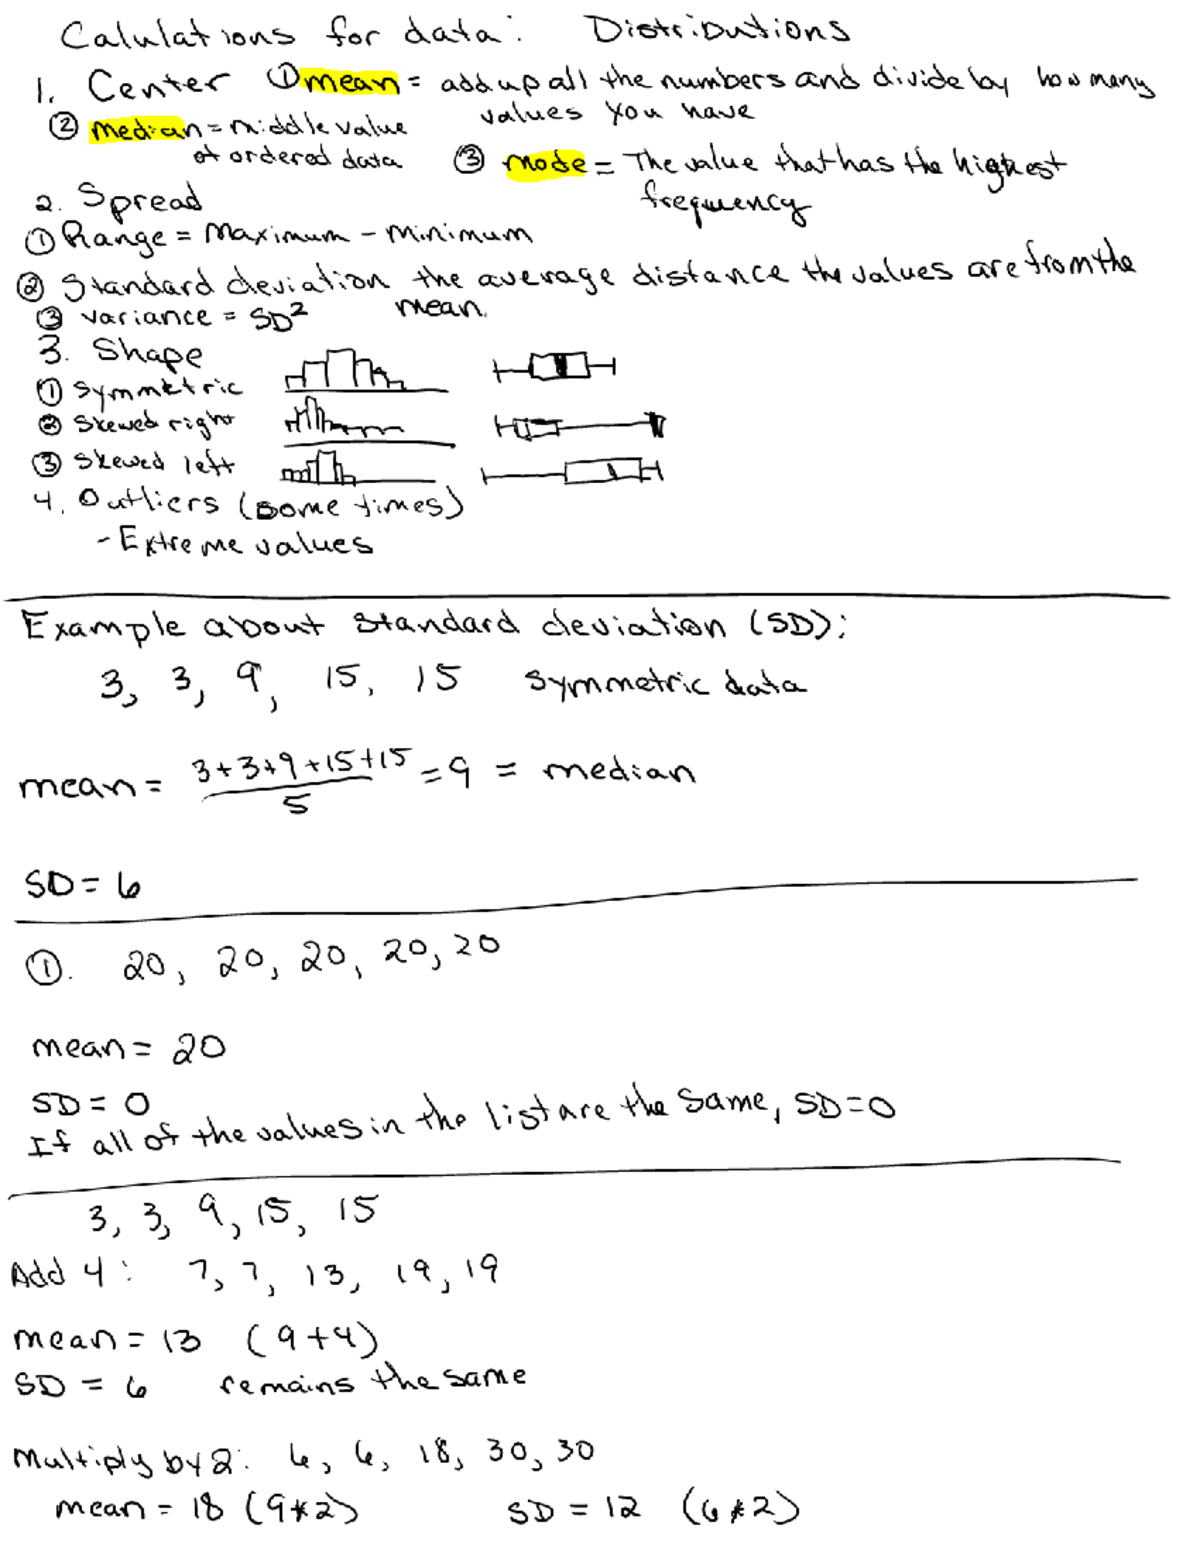 Calulations for data: Distributions
1. Center ① mean = add up all the numbers and divide by how many
values you have
② median = middle value
of ordered data
③ mode = The value that has the highest
frequency
2. Spread
① Range = Maximum - Minimum
② Standard deviation the average distance the values are from the
mean.
③ variance = SD²
3. Shape
① Symmetric
② Skewed right
③ Skewed left
4. Outliers (some times)
- Extreme values
Example about standard deviation (SD):
3, 3, 9, 15, 15 symmetric data
mean = 3+3+9+15+15 = 9 = median
5
SD = 6
①. 20, 20, 20, 20, 20
mean = 20
SD = 0
If all of the values in the list are the same, SD=0
3, 3, 9, 15, 15
Add 4: 7, 7, 13, 19, 19
mean = 13 (9+4)
SD = 6 remains the same
Multiply by 2: 6, 6, 18, 30, 30
mean = 18 (9*2) SD = 12 (6*2)